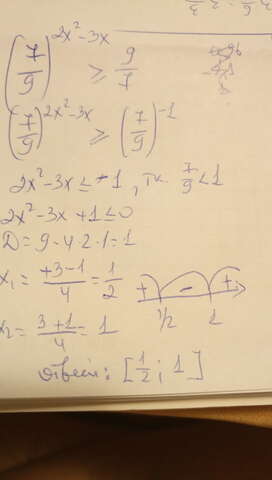 (7/9)^(2x²-3x) ≥ 9/7
(7/9)^(2x²-3x) ≥ (7/9)^(-1)
2x²-3x ≤ -1, т.к. 7/9 < 1
2x²-3x+1≤0
D = 9-4·2·1=1
x₁ = (+3-1)/4 = 1/2
+ - +
1/2 1
x₂ = (3+1)/4 = 1
ответ: [1/2; 1]